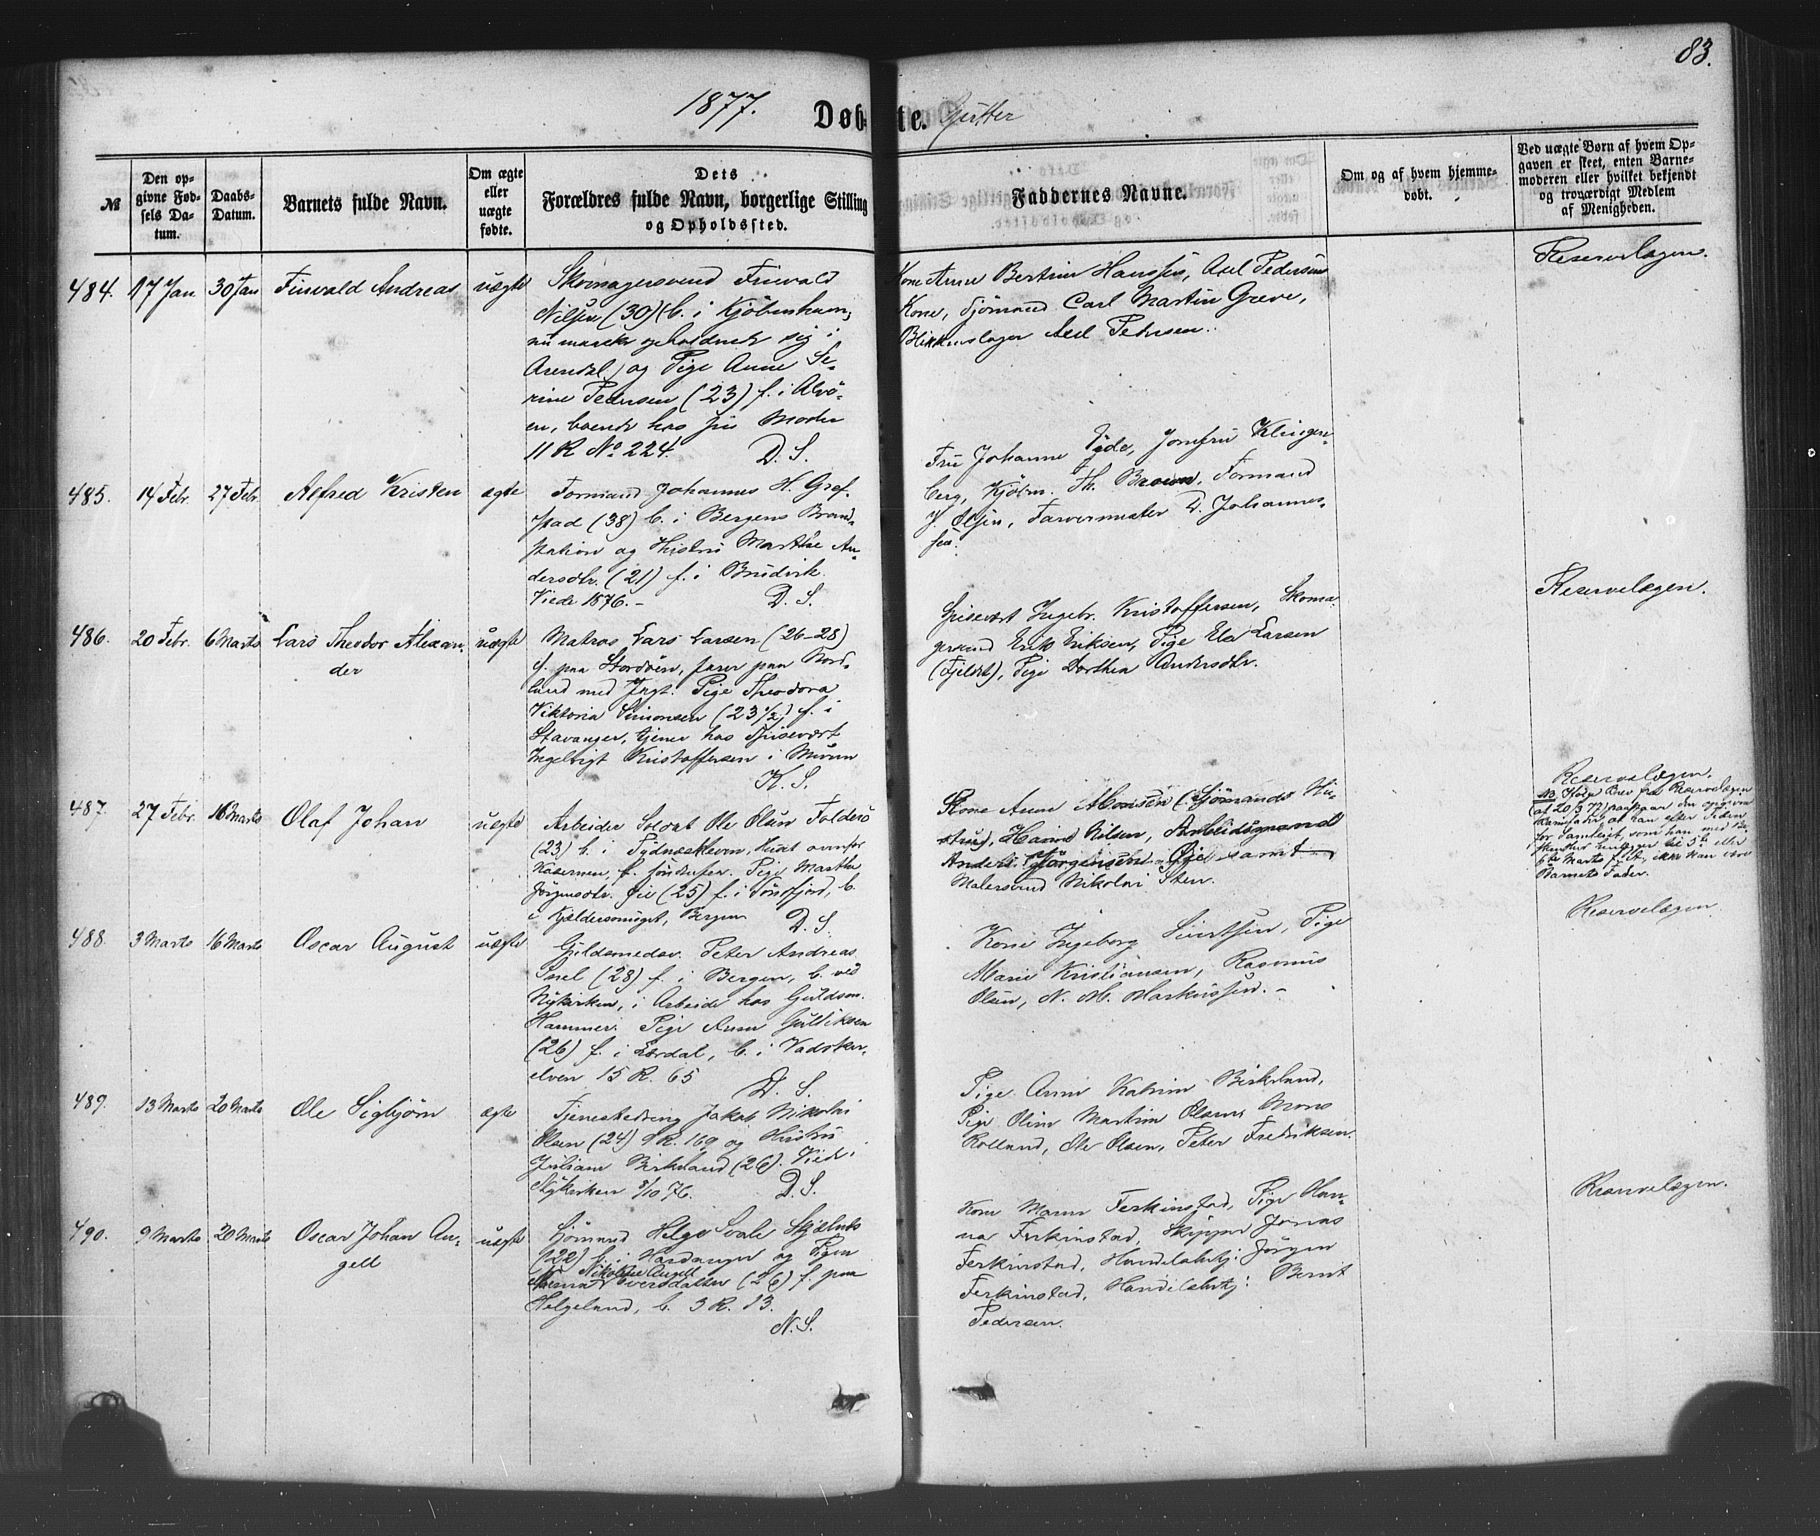 83.
1877.
Døb- te. Gutter
№
Den op-
givne Fød-
sels Da-
tum.
Daabs-
Datum.
Barnets fulde Navn.
Om ægte
eller
uægte
fødte.
Dets
Forældres fulde Navn, borgerlige Stilling
og Opholdssted.
Faddernes Navne.
Om og af hvem hjemme-
døbt.
Ved uægte Børn af hvem Op-
gaven er skeet, enten Barne-
moderen eller hvilket bekjendt
og troværdigt Medlem
af Menigheden.
484. 17 Jan 30 Jan Finvald Andreas uægte
Skomagersvend Finvald
Nilsen (30) (b. i Kjöbenhavn,
opholdende sig i
Arendal) og Pige Anne Se-
rine Pedersen (23) f. i Alvö-
en, boende hos sin Moder
11 R No 224. D. S.
Kone Anne Bertine Hanssen, Axel Pedersens
Kone, Sjömand Carl Martin Greve,
Blikkenslager Axel Petersen.
Reservelægen.
485. 14 Febr. 27 Febr. Alfred Kristen ægte
Formand Johannes H. Gref-
stad (38) b. i Bergens Brand-
station og Hustru Marthe An-
dersdtr. (21) f. i Brudvik.
Viede 1876.- D. S.
Fru Johanne Jomfru Klingen-
berg, Kjöbm. Th. Bruun, Formand
J. Olsen, Farvermester D. Johannes-
sen.
486. 20 Febr. 6 Marts Lars Theodor Alexan-
der uægte
Matros Lars Larsen (26-28)
f. paa Stordöen, farer paa Nord-
land med Jagt. Pige Theodora
Viktoria Simonsen (23 1/2) f. i
Stavanger, tjener hos Spisevært
Ingebrigt Kristoffersen i Muren
K. S.
Spisevært Ingebr. Kristoffersen, Skoma-
gersvend Erik Eriksen, Pige Ela Larsen
(Fjeldet), Pige Dorthea Andersdtr.
Reservelægen.
487. 27 Febr. 16 Marts Olaf Johan uægte
Arbeider Soldat Ole Olsen Foldersö
(23) b. i ovenfor
Kasernen, f. Pige Marthe
Jörgensdtr. Öie (25) f. i Söndfjord, b.
i Kjeldersmuget, Bergen D. S.
Kone Anne Monsen (Sjömands Hu-
stru), Hanne Nilsen, Arbeidsmand
Anders Jörgensen Öie samt
Malersvend Nikolai Sten.
Reservelægen.
Ifölge Brev fra Reservelægen
Barnets Fader.
488. 3 Marts 16 Marts Oscar August uægte
Guldsmedsv. Peter Andreas
Snel (28) f. i Bergen, b. ved
Nykirken, i Arbeide hos Guldsm.
Hammer. Pige Anne Gulliksen
(26) f. i Lærdal, b. i Vadsker-
elven 15 R. 65 D. S.
Kone Ingeborg Sivertsen, Pige
Marie Kristiansen, Rasmus
Olsen, N. M. Markussen.-
Reservelægen
489. 13 Marts 20 Marts Ole Sigbjörn ægte
Tjenestedreng Jakob Nikolai
Olsen (24) 4 R. 169 og Hustru
Juliane Birkeland (26). Viede i
Nykirken 8/10 76. D. S.
Pige Anne Katrine Birkeland,
Pige Oline Martine Olsen, Mons
Rolland, Ole Olsen, Peter Fredriksen.
490. 9 Marts 20 Marts Oscar Johan An-
gell uægte
Sjömand Helge Svale Skjelnes
(22) b. i Hardanger og Pigen
Nikoline Angell
Iversdatter (26) f. paa
Helgeland, b. 3 R. 13.
N. S.
Kone Maren Ferkinstad, Pige Han-
na Ferkinstad, Skipper Jonas
Ferkinstad, Handelsbetj. Jörgen
Ferkinstad, Handelsbetj: Bernt
Pedersen.
Reservelægen.